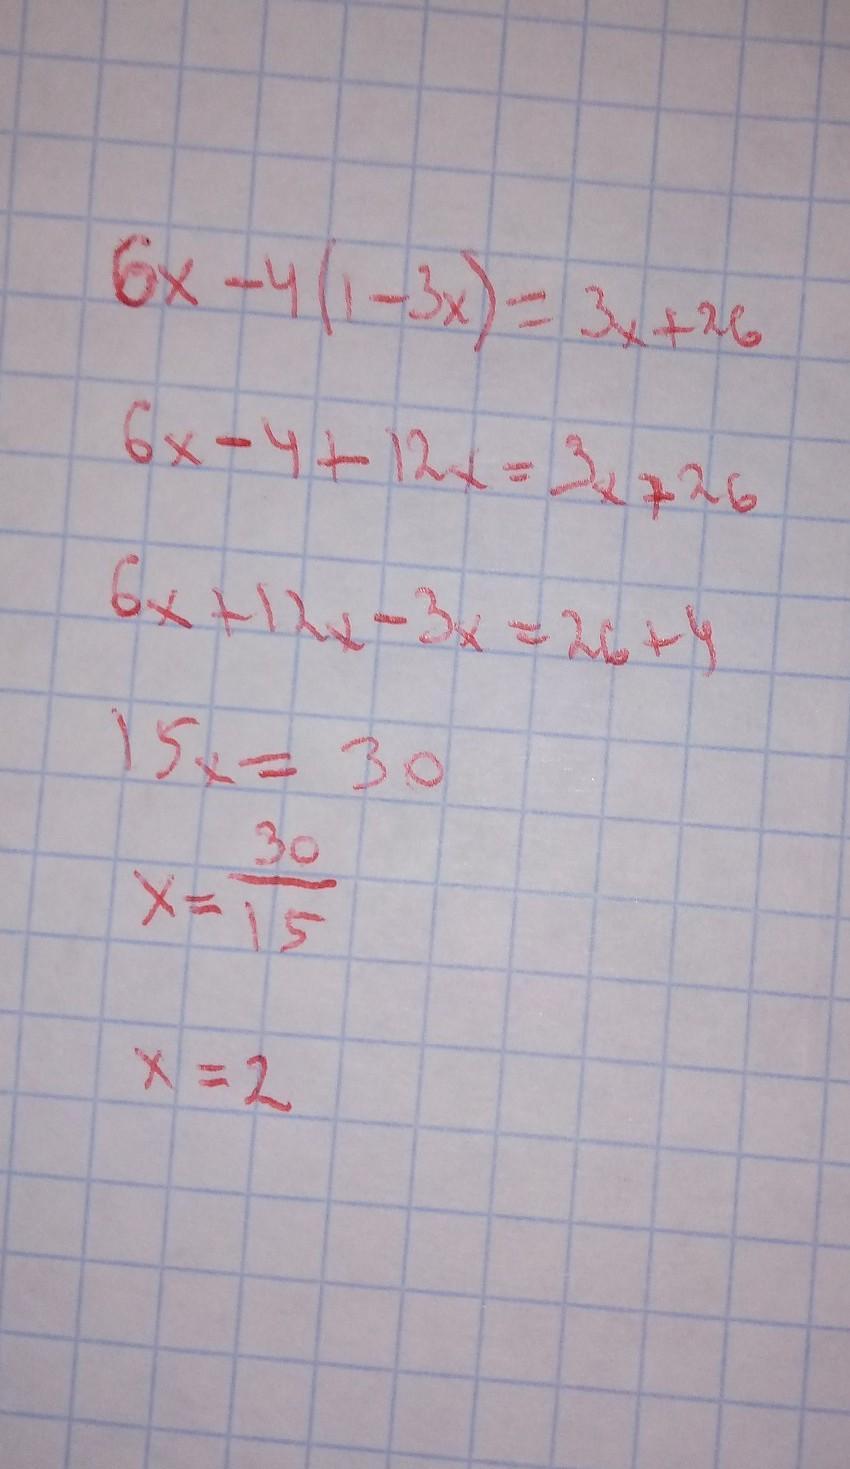 6x - 4(1 - 3x) = 3x + 26
6x - 4 + 12x = 3x + 26
6x + 12x - 3x = 26 + 4
15x = 30
x = 30/15
x = 2